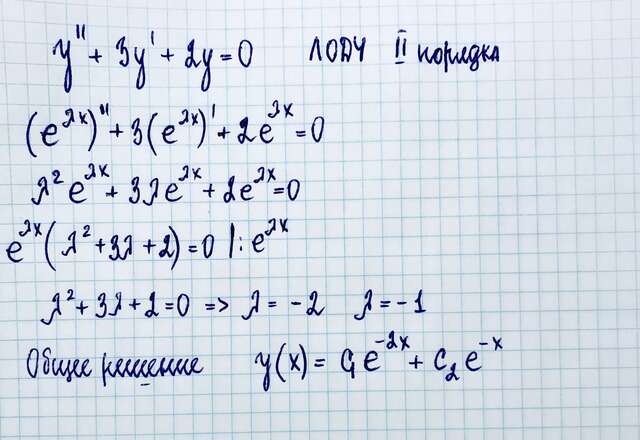 y'' + 3y' + 2y = 0 ЛОДУ II порядка
(e^{λx})'' + 3(e^{λx})' + 2e^{λx} = 0
λ² e^{λx} + 3λe^{λx} + 2e^{λx} = 0
e^{λx}(λ² + 3λ + 2) = 0 |: e^{λx}
λ² + 3λ + 2 = 0 => λ = -2 λ = -1
Общее решение y(x) = C₁e^{-2x} + C₂e^{-x}